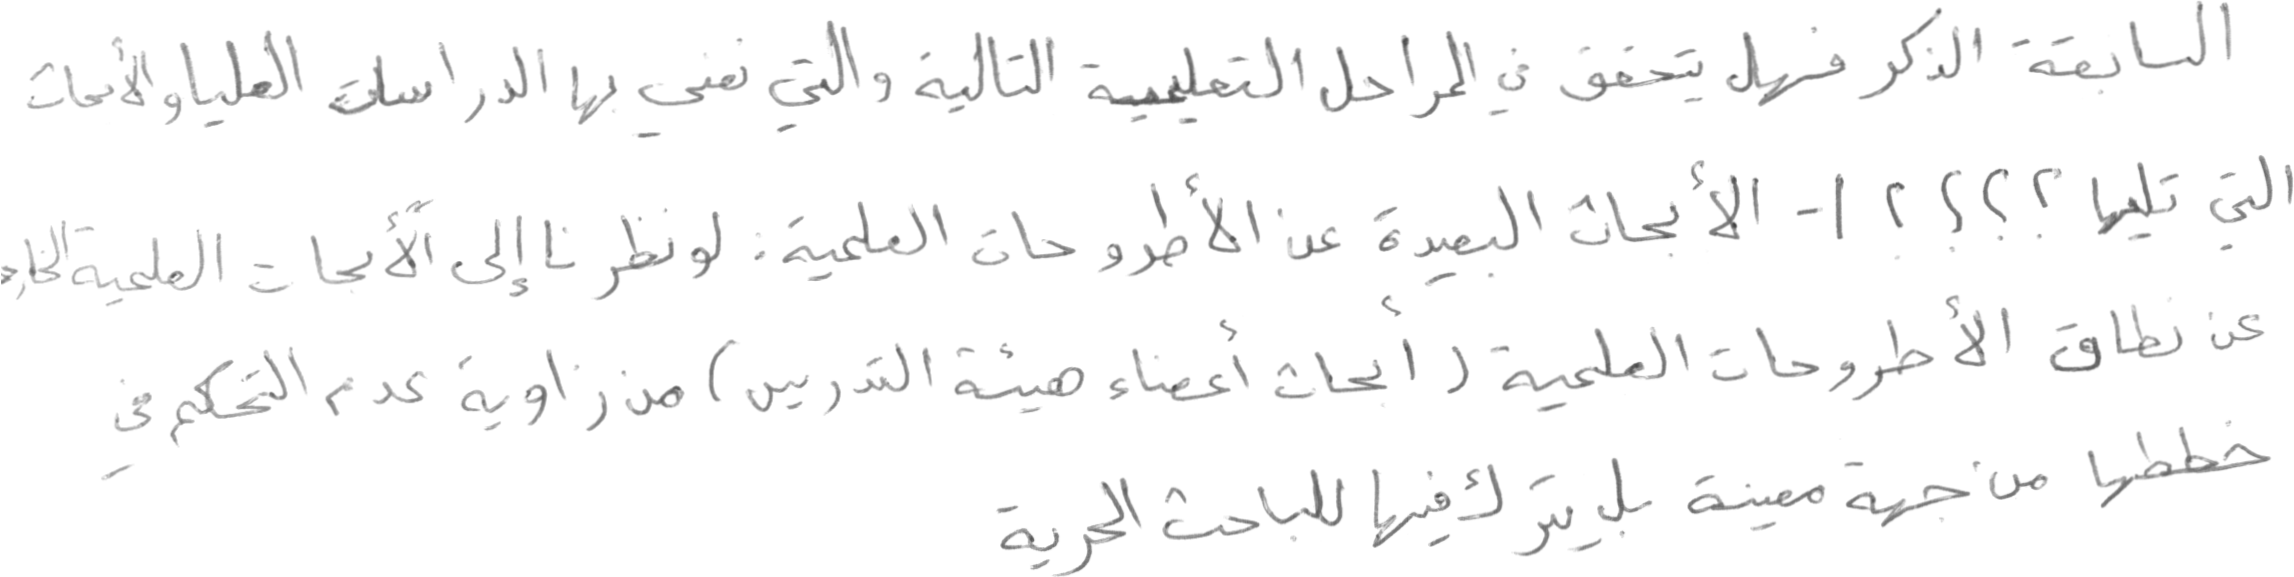 السابقة الذكر فهل يتحقق في المراحل التعليمية التالية والتي نعني بها الدراسات العليا والأبحاث
التي تليها ؟ ؟ ؟ ؟ 1- الأبحاث البعيدة عن الأطروحات العلمية: لو نظرنا إلى الأبحاث العلمية
عن نطاق الأطروحات العلمية (أبحاث أعضاء هيئة التدريس) من زاوية عدم التحكم في
خططها من جهة معينة بل يترك فيها للباحث الحرية